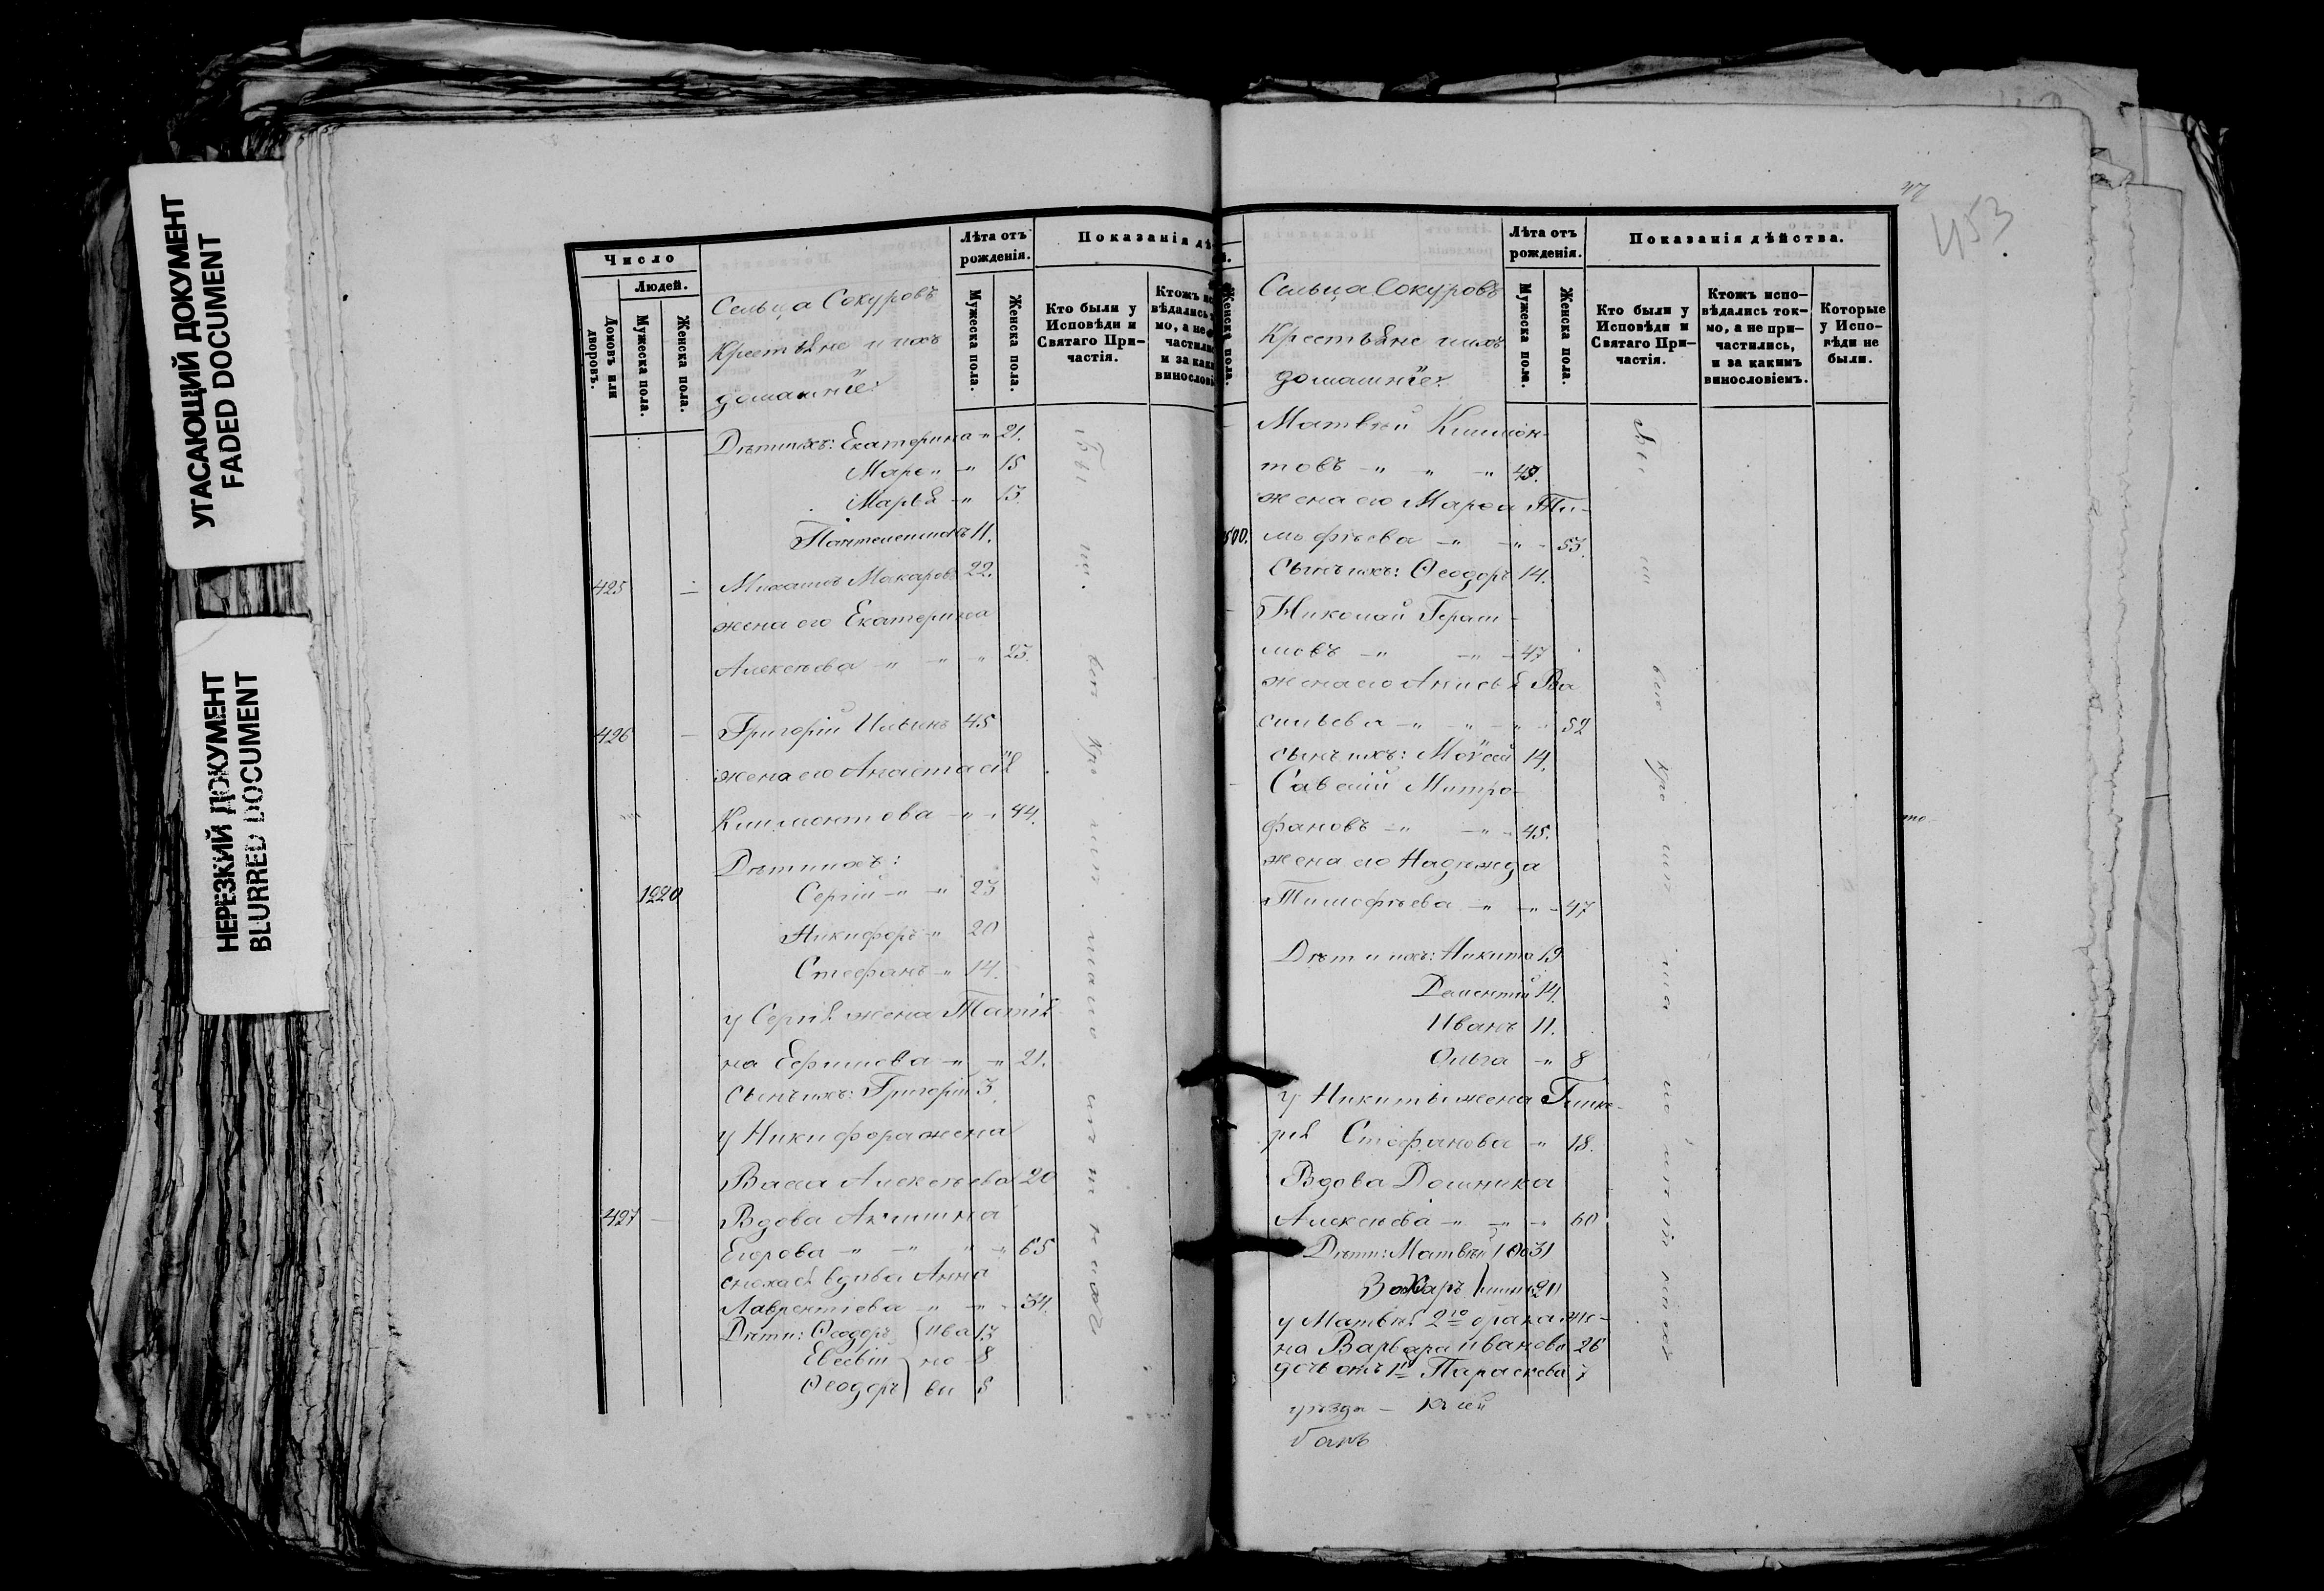 УГАСАЮЩИЙ ДОКУМЕНТ
FADED DOCUMENT
НЕРЕЗКИЙ ДОКУМЕНТ
BLURRED DOCUMENT
Число
Людей.
Домовъ или дворовъ.
Мужеска пола.
Женска пола.
Сельца Сокуровъ
Крестьяне и ихъ
домашніе:
Лѣта отъ рожденія.
Мужеска пола.
Женска пола.
Показанія дѣ
Кто были у Исповѣди и Святаго Причастія.
Дѣти ихъ: Екатерина " 21.
Марѳ " " 15
Марья " 13.
Пантелеимонъ 11.
425 — Михаилъ Макаровъ 22.
жена его Екатерина
Алексѣева " " " 23.
426 — Григорій Ильинъ 45
жена его Анастасія
Климонтова " " 44.
Дѣти ихъ:
1220 Сергій " " 23
Никифоръ " 20
Стефанъ " 14.
у Сергія жена Татія-
на Ефимова " " 21.
сынъ ихъ: Григорій 3.
у Никифора жена
Васса Алексѣева 20
427 — Вдова Акилина
Егорова " " " " 65
сноха ея вдова Анна
Лаврентіева " " " 34.
Дѣти: Ѳеодоръ Ива 13
Евсевій но 8
Ѳеодоръ вы 5
47
453
Женска пола.
Сельца Сокуровъ
Крестьяне и ихъ
домашніе:
Лѣта отъ рожденія.
Мужеска пола.
Женска пола.
Показанія дѣйства.
Кто были у Исповѣди и Святаго Причастія.
Ктожъ исповѣдались токмо, а не причастились, и за какимъ винословіемъ.
Которые у Исповѣди не были.
Матвѣй Климон-
товъ " " " 49.
жена его Марѳа Ти-
500. мофѣева " " 53.
Сынъ ихъ: Ѳеодоръ 14.
Николай Гераси-
мовъ " " 47
жена его Анисья Ва
сильева " " " " 52
сынъ ихъ: Моѵсей 14.
Савелій Митро-
фановъ " " 45.
жена его Надежда
Тимофѣева " " 47
Дѣти ихъ: Никита 19
Дементій 14.
Иванъ 11.
Ольга " 8
у Никиты жена Глике-
рія Стефанова " 18.
Вдова Домника
Алексѣева " " " 60
Дѣти: Матвѣй Ѳо 31
Захаръ мины 20
у Матвѣя 2го брака же-
на Варвара Иванова 26
дочь отъ 1го Параскева 7